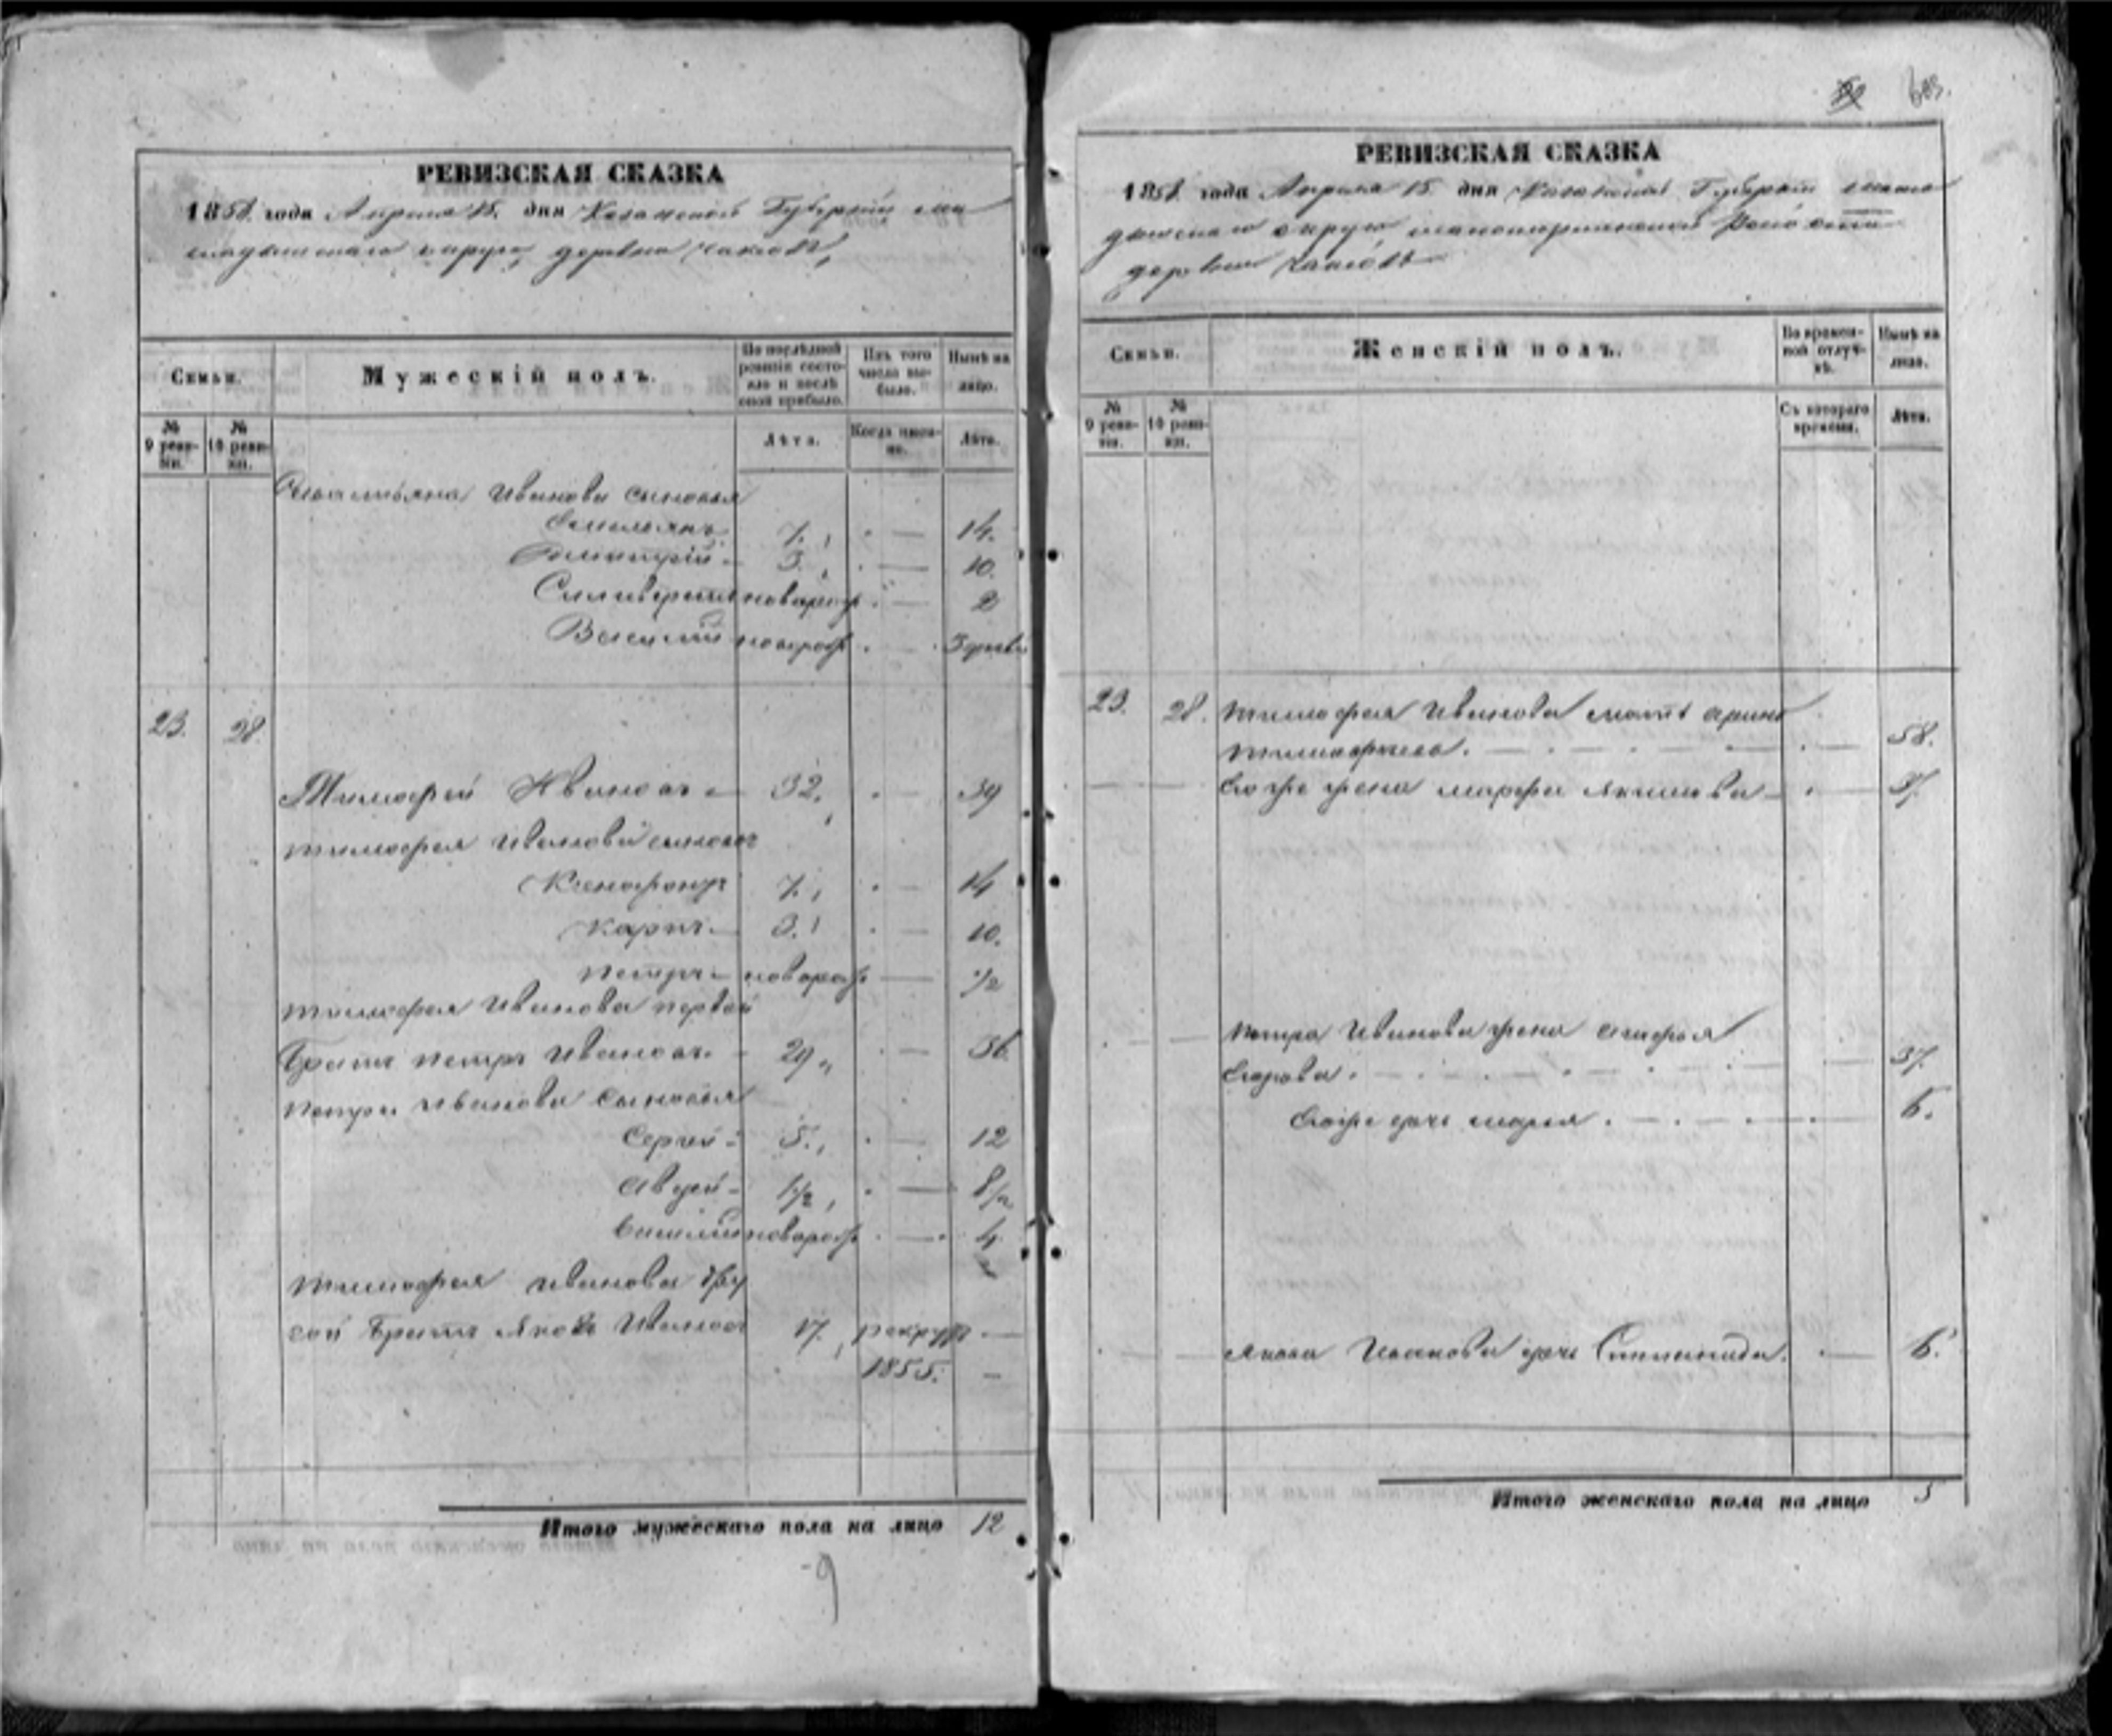 РЕВИЗСКАЯ СКАЗКА
1858 года Апреля 15. дня Казанской Губернии
округа деревни
Семьи.
Мужескій полъ.
По послѣдней ревизіи состояло и послѣ оной прибыло.
Изъ того числа выбыло.
Нынѣ на лицо.
№ 9 ревизіи.
№ 10 ревизіи.
Лѣта.
Когда именно.
Лѣта.
Иванова сыновья
Емельянъ 7. 14.
Дмитрій 3. 10.
новорож 2
Василий новорож
23. 28.
Тимофей Ивановъ 32. 39
Тимофея Иванова сыновья
Ксенофонтъ 7. 14
Карпъ 3. 10.
Петръ новорож 1/2
Тимофея Иванова первой
Братъ Петръ Ивановъ 29 36
Петра Иванова Сыновья
Сергей 5. 12
Авдей 1/2 8/2
новорож 4
Тимофея Иванова дру
гой Братъ Яковъ Ивановъ 17. рекрут
1855.
Итого мужескаго пола на лицо 12
9
РЕВИЗСКАЯ СКАЗКА
1858 года Апреля 15. дня Казанской Губернии
округа
деревни
Семьи.
Женскій полъ.
Во временной отлучкѣ.
Нынѣ на лицо.
№ 9 ревизіи.
№ 10 ревизіи.
Съ котораго времени.
Лѣта.
23. 28. Тимофея Иванова мать Арина
Тимофеева. 58.
Его же жена Марфа Якимова 37.
Петра Иванова жена Агафья
Егорова. 37.
Его же дочь Марья. 6.
Якова Иванова дочь 6.
Итого женскаго пола на лицо 5